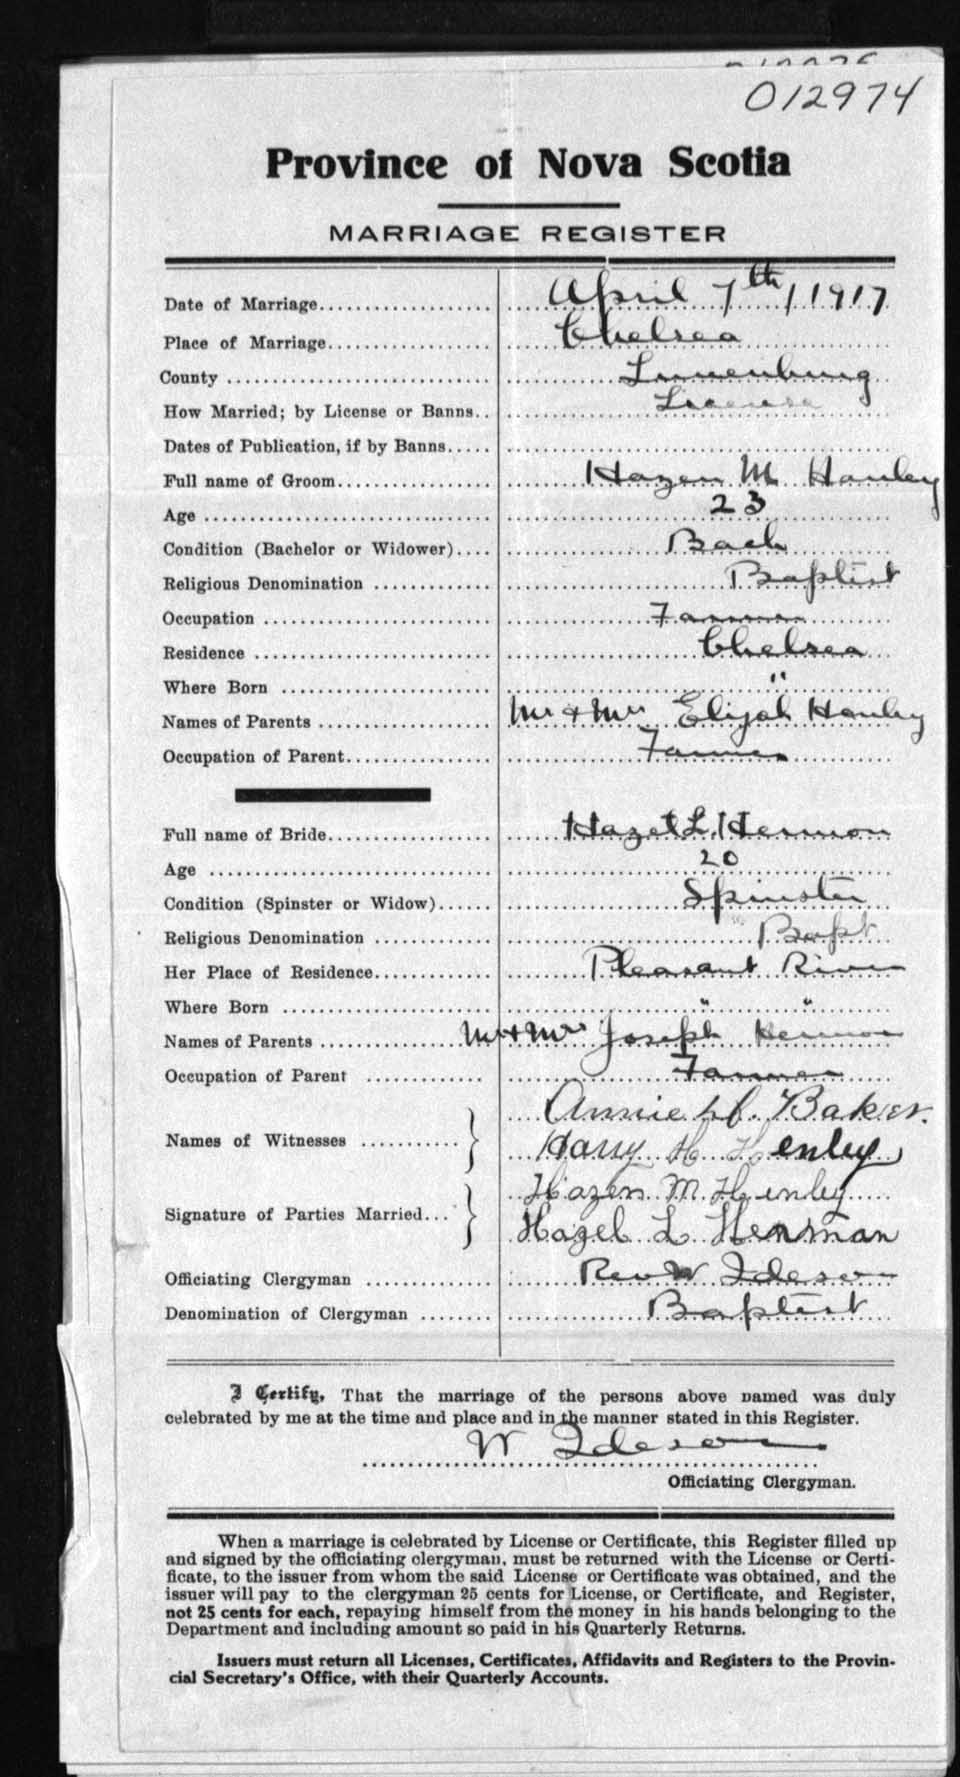 012974
Province of Nova Scotia
MARRIAGE REGISTER
Date of Marriage.................... April 7th, 1917
Place of Marriage................... Chelsea
County ............................. Lunenburg
How Married; by License or Banns.. License
Dates of Publication, if by Banns.....
Full name of Groom.................. Hazen M Hanley
Age ................................ 23
Condition (Bachelor or Widower).... Bach
Religious Denomination ............. Baptist
Occupation ......................... Farmer
Residence .......................... Chelsea
Where Born ......................... "
Names of Parents ................... Mr & Mrs Elijah Hanley
Occupation of Parent................ Farmer
Full name of Bride.................. Hazel L. Hermon
Age ................................ 20
Condition (Spinster or Widow)...... Spinster
Religious Denomination ............. Bapt
Her Place of Residence.............. Pleasant River
Where Born ......................... " "
Names of Parents ................... Mr & Mrs Joseph Hermon
Occupation of Parent ............... Farmer
Annie Baker.
Names of Witnesses ........... } Harry H Henley
Hazen M. Henley
Signature of Parties Married... } Hazel L Herman
Officiating Clergyman .............. Rev W Ideson
Denomination of Clergyman ........ Baptist
I Certify, That the marriage of the persons above named was duly
celebrated by me at the time and place and in the manner stated in this Register.
W Ideson
Officiating Clergyman.
When a marriage is celebrated by License or Certificate, this Register filled up
and signed by the officiating clergyman, must be returned with the License or Certi-
ficate, to the issuer from whom the said License or Certificate was obtained, and the
issuer will pay to the clergyman 25 cents for License, or Certificate, and Register,
not 25 cents for each, repaying himself from the money in his hands belonging to the
Department and including amount so paid in his Quarterly Returns.
Issuers must return all Licenses, Certificates, Affidavits and Registers to the Provin-
cial Secretary's Office, with their Quarterly Accounts.